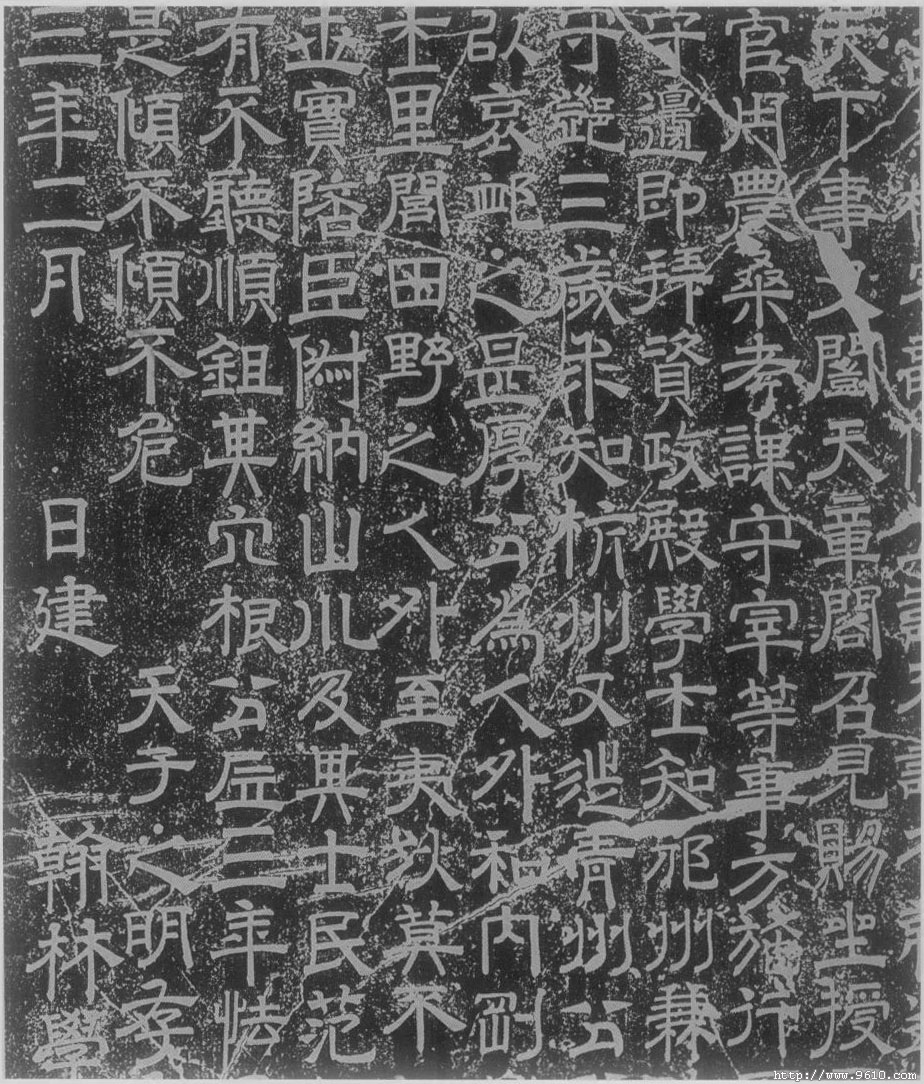 天下事又闓天章閣召見賜坐授
官用農桑考課守宰等事方施行
守邊即拜資政殿學士知邠州兼
守鄧三歲求知杭州又徙青州公
以哀卹之甚厚公爲人外和內剛
士里閭田野之人外至夷狄莫不
世實陪臣附納山川及其士民范
有不聽順鉏其穴根公居三年怯
是傾不傾不危 天子之明存
三年二月 日建 翰林學
http://www.9610.com